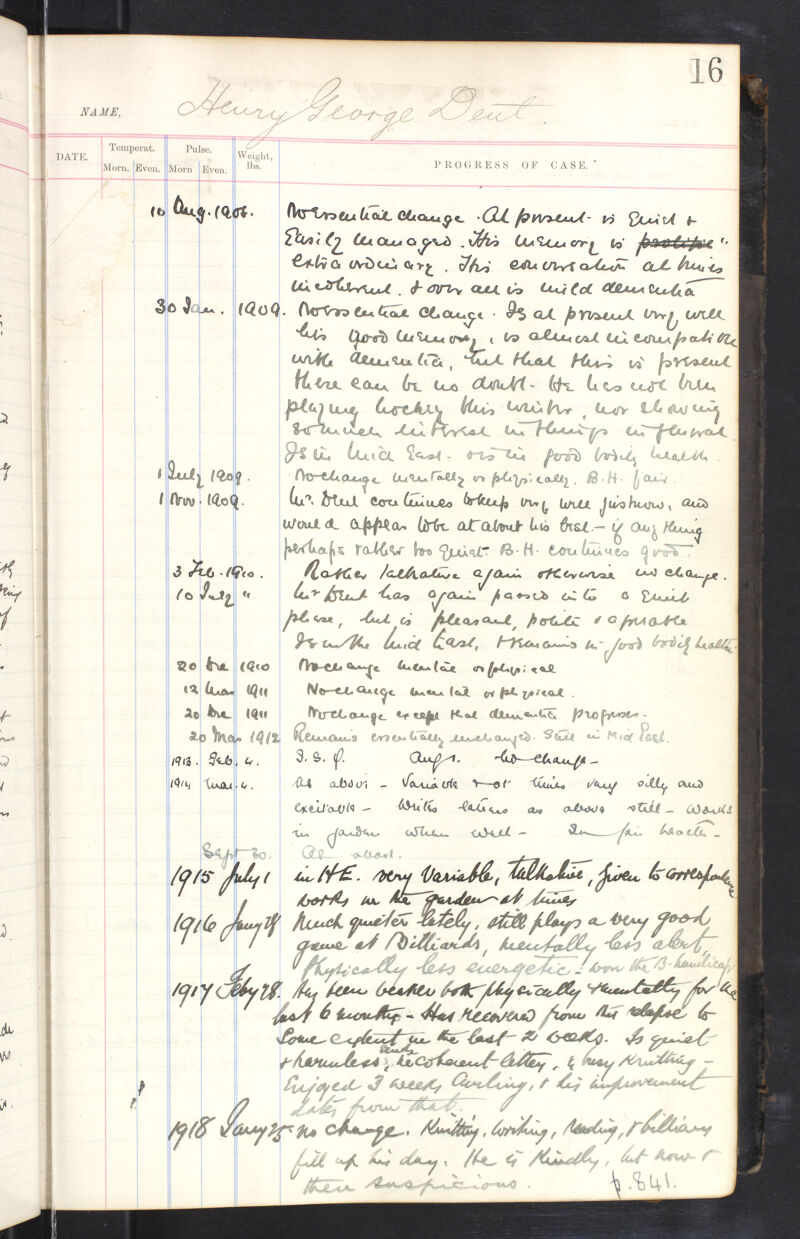 16
NAME, Henry George Dent.
DATE. Temperat. Pulse. Weight, lbs. PROGRESS OF CASE.
Morn. Even. Morn Even.
10 Aug. 1908. No essential change. At present is quiet &
easily managed. His memory is
extraordinary. His conversation at times
incoherent. & over all is mild dementia
30 Jan. 1909. No essential change. Is at present very well
his good memory, is almost incompatible
with dementia, but that this is present
there can be no doubt. He has not been
playing hockey this winter, nor showing
so much interest in things in general.
Is in Mid East. & is in good bodily health.
1 July 1909. No change mentally or physically. B.H. fair.
1 Nov. 1909. Mr. Dent continues to keep very well just now, and
would appear to be at about his best – if anything
perhaps rather too quiet. B.H. continues good.
3 Feb. 1910. Rather talkative again otherwise no change.
10 July " Mr Dent has again passed into a quiet
phase, but is pleasant, polite & agreeable
Is in the Mid East, & remains in good bodily health
20 Dec 1910 No change mental or physical
12 Mar 1911 No change mental or physical.
20 Dec 1911 No change except that dementia progresses.
20 Mar 1912 Remains essentially unchanged. Still in Mid East.
1913. Feb. 4. I.S.Q. Aug 1. No change –
1914 Mar. 4. As above – Variable & at times very silly and
excitable – Writes letters as above still – Works
in garden when well – In fair health –
Sept 30. As above.
1915 July 1 in H E. very variable, talkative, given to correspondence
works in the garden at times
1916 Jany 28 Much quieter lately, still plays a very good
game at Billiards, mentally less alert,
Physically less energetic – won the B. handicap
1917 Feby 28. Has been weaker both physically & mentally for the
last 6 months – Has recovered from this relapse to
some extent in the last 2 weeks. Is quiet
& harmless, sends incoherent letters, & busy Knitting –
Enjoyed 3 weeks Curling, & his improvement
dates from that.
1918 Jany 25 no change. Knitting, writing, reading, & billiards
fill up his day. He is Kindly, but now &
then suspicious. p. 841.